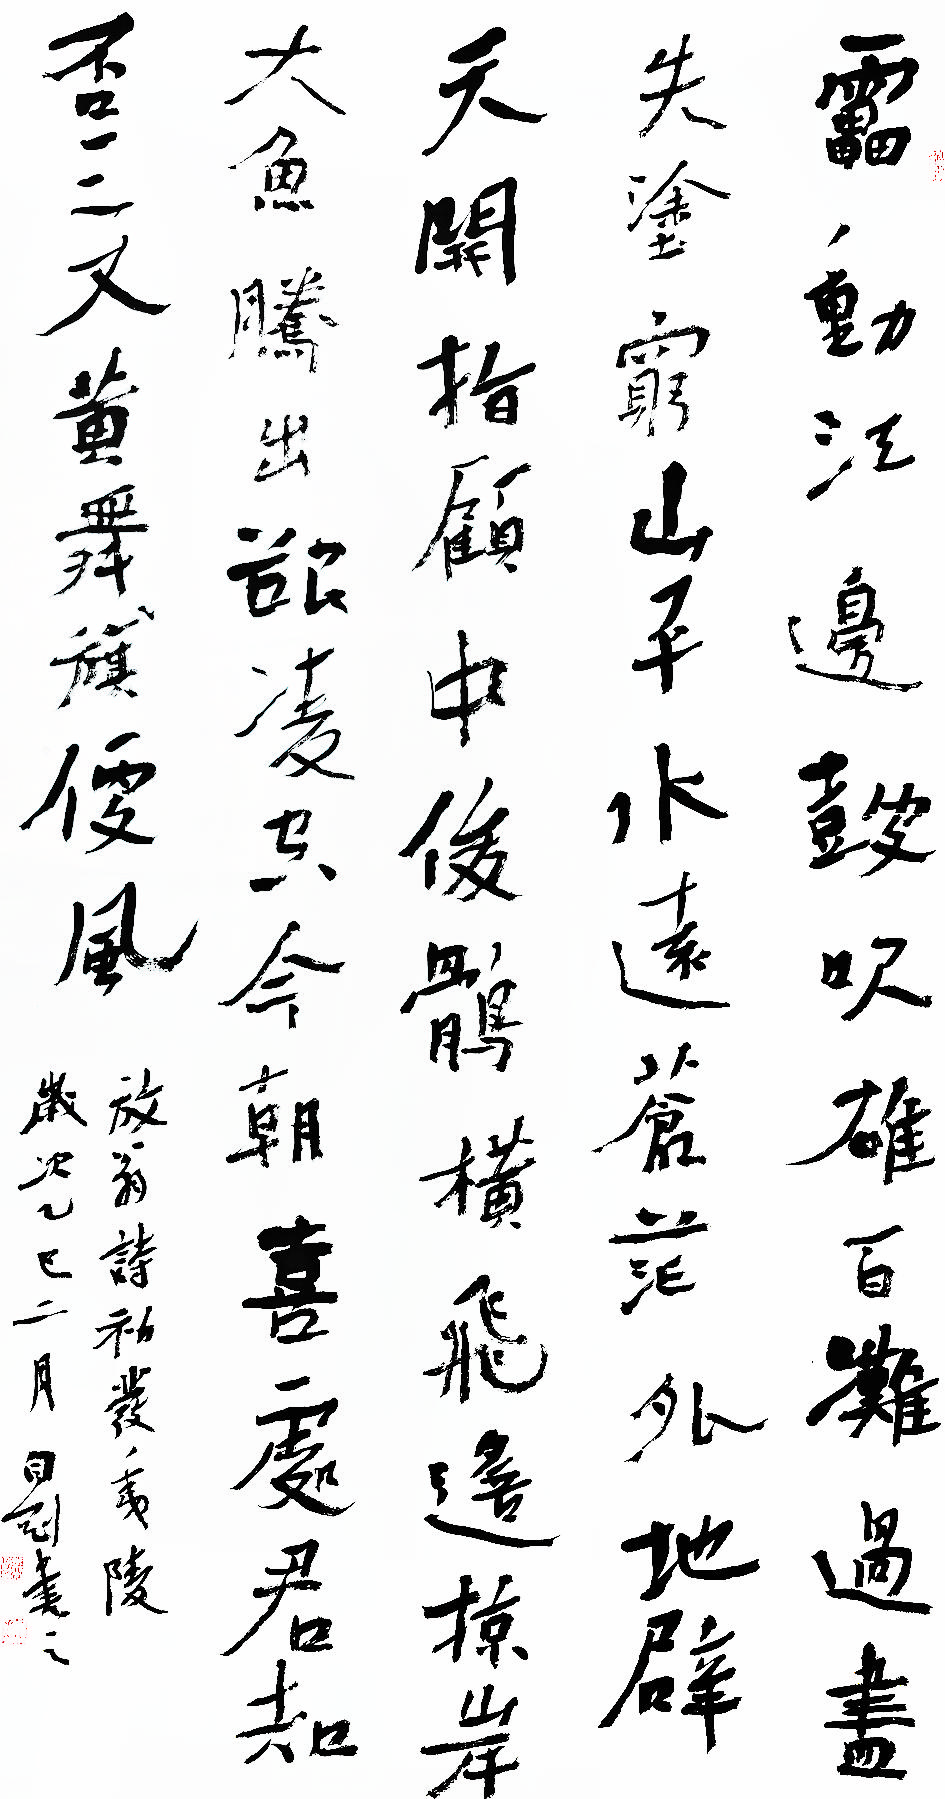 靁動江邊鼓吹雄百灘過盡
失塗窮山平水遠蒼茫外地辟
天開指顧中俊鶻橫飛遙掠岸
大魚騰出欲凌空今朝喜處君知
否三丈黃舞旗便風
放翁詩初發夷陵
歲次乙巳二月書之